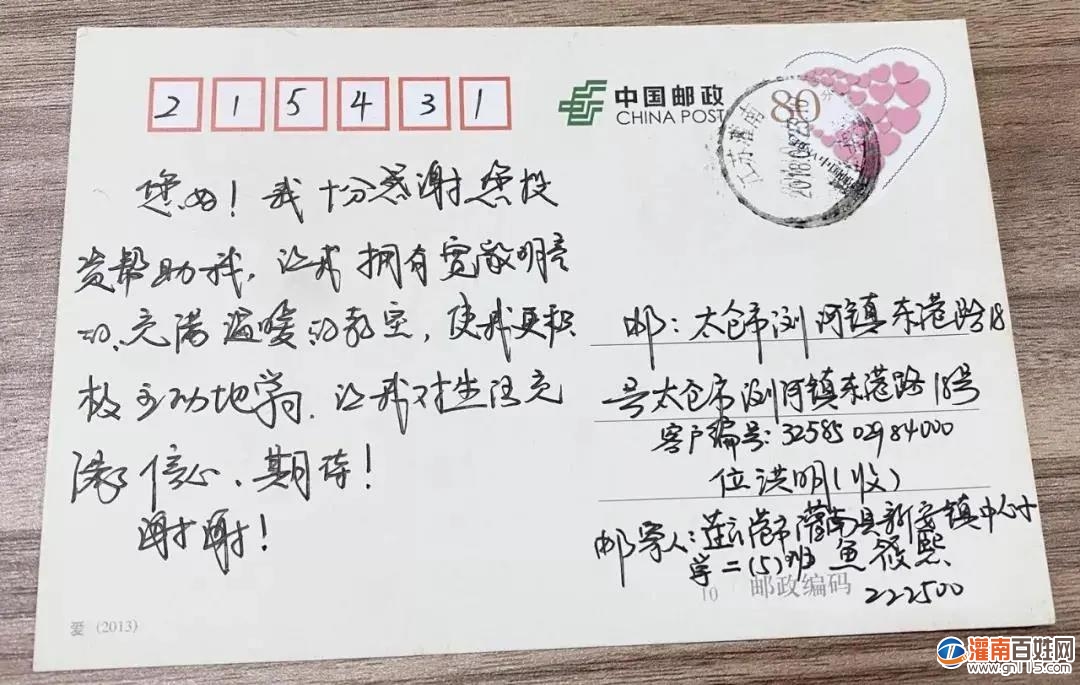 215431
中国邮政
CHINA POST
80分
江苏灌南
2018.
您好！我十分感谢您投
资帮助我，让我拥有宽敞明亮
的、充满温暖的教室，使我更积
极主动地学习，让我对生活充
满了信心、期待！
谢谢！
邮：太仓市浏河镇东港路18
号太仓市浏河镇东港路18号
客户编号：3258502984000
位洪明（收）
邮寄人：连云港市灌南县新安镇中心小
学二（5）班 鱼筱熙
10 邮政编码 222500
爱 (2013)
灌南百姓网
www.gn115.com